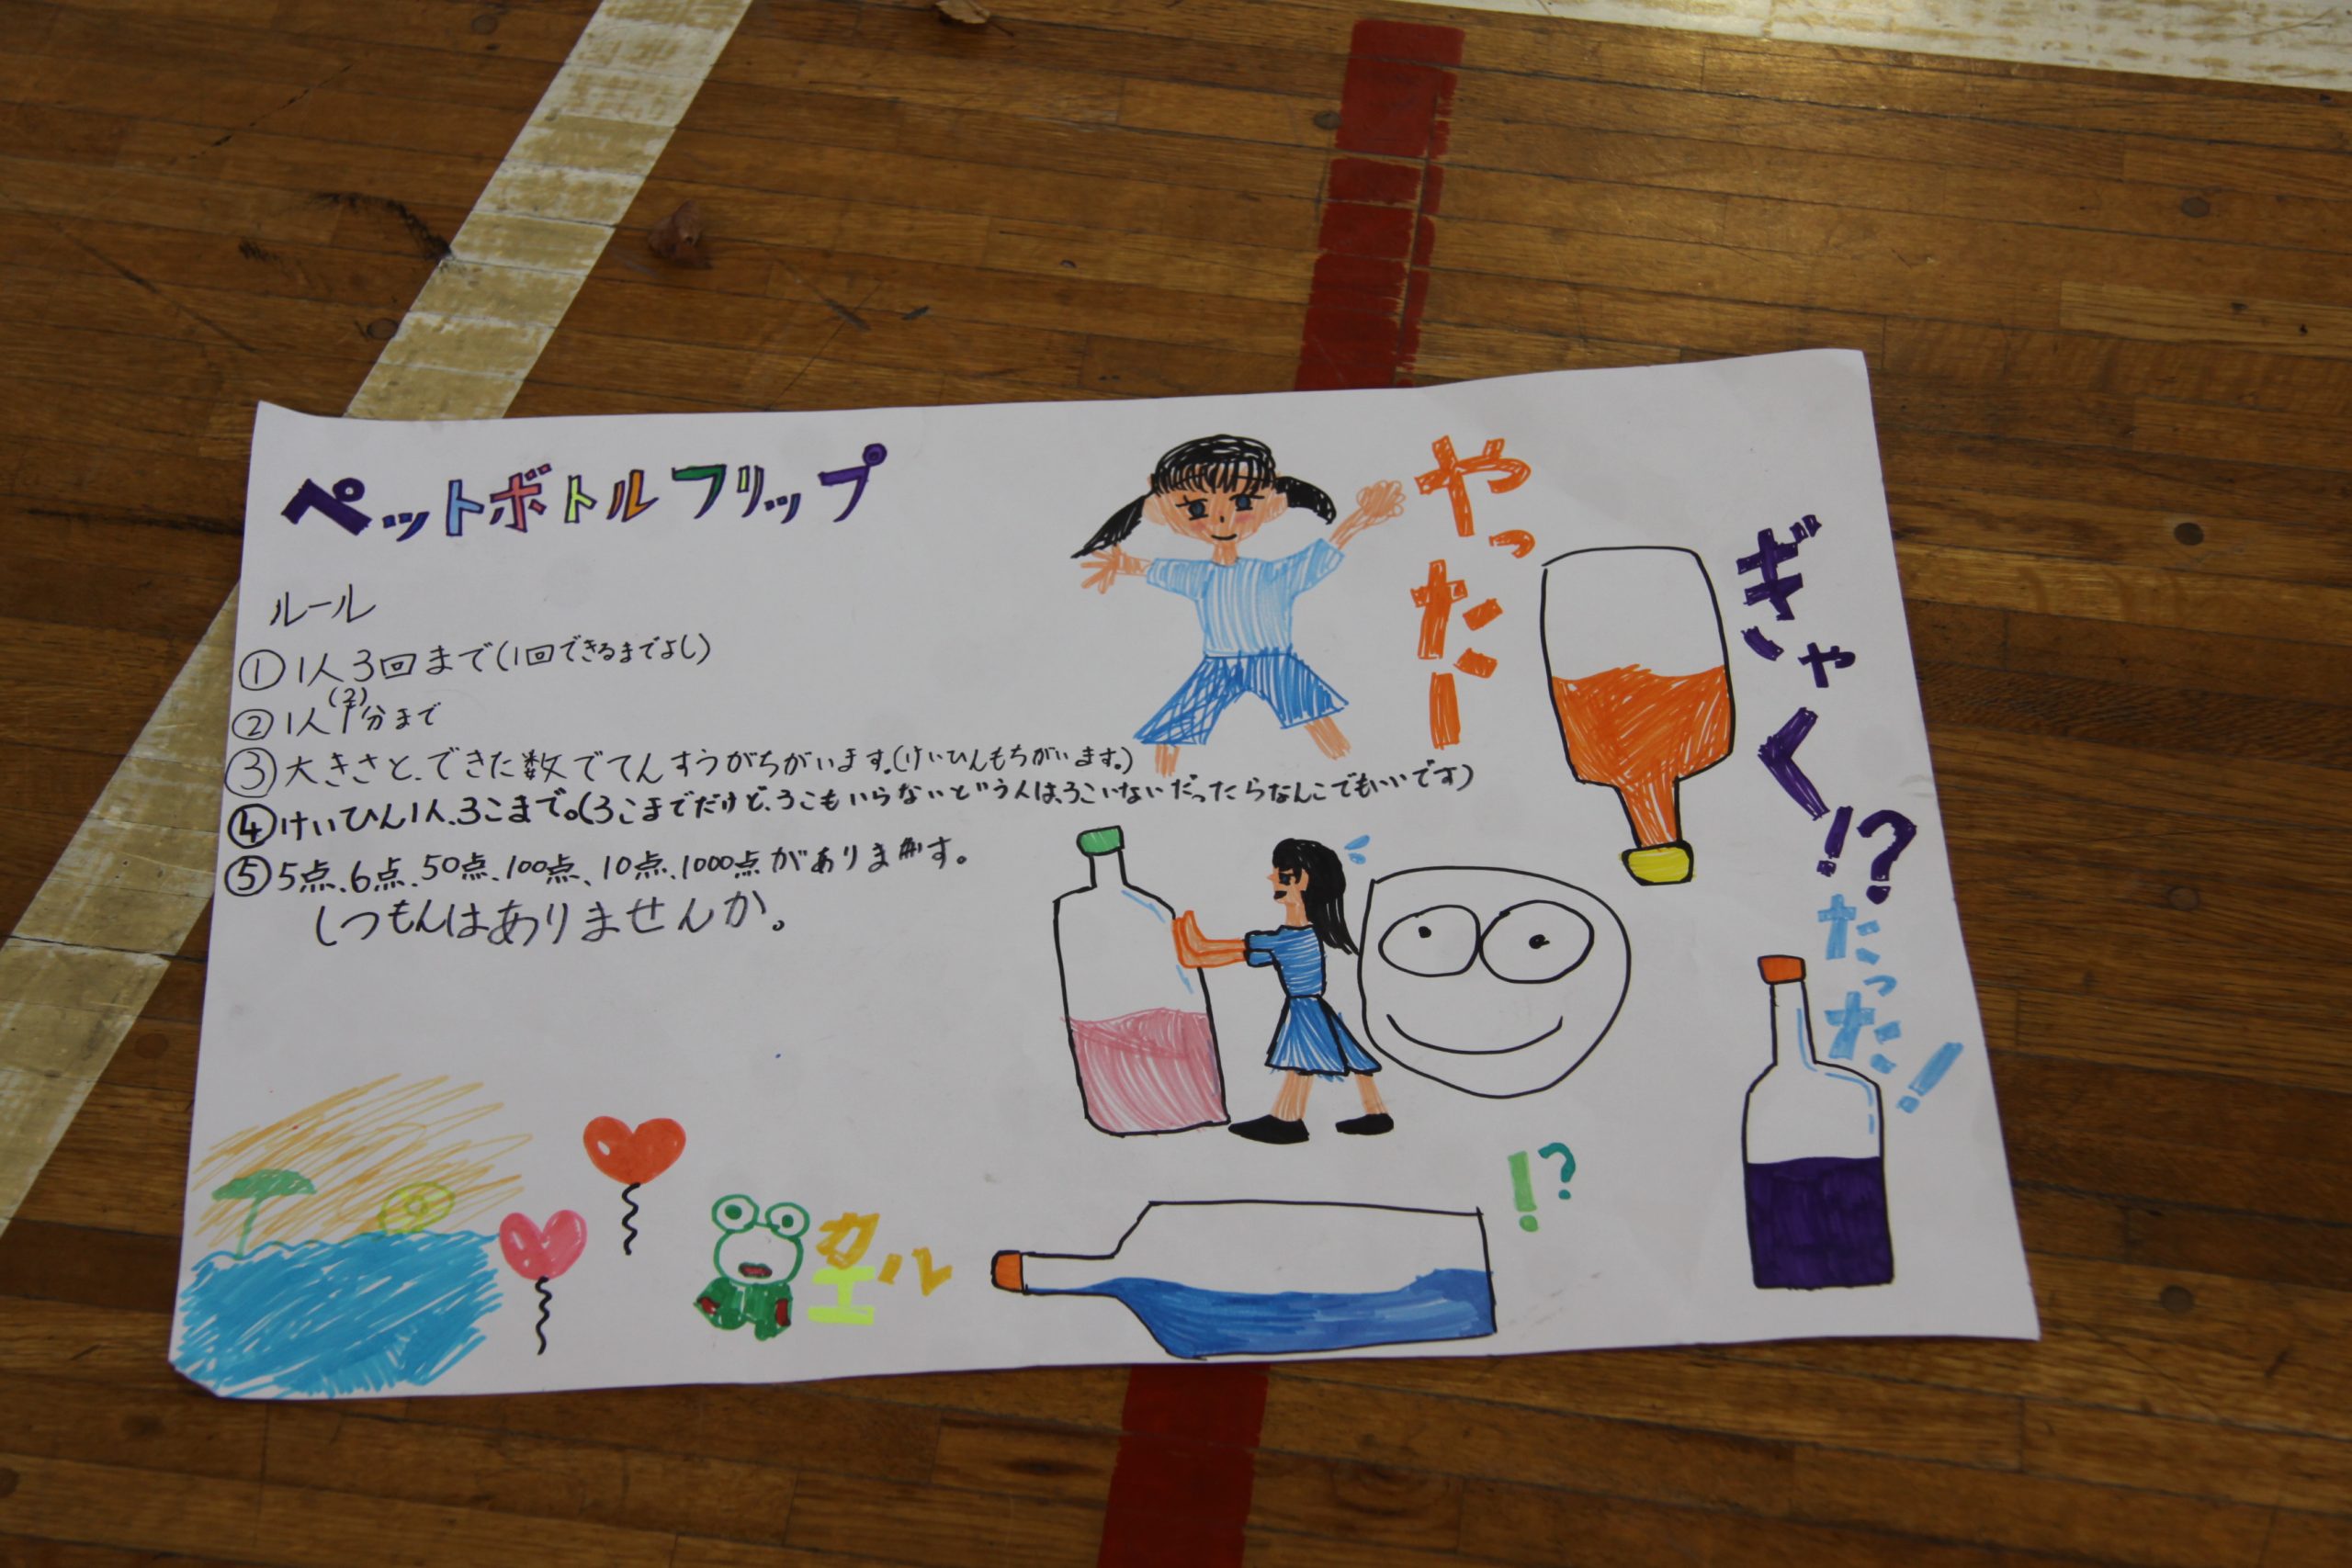 ペットボトルフリップ
ルール
①1人3回まで(1回できるまでよし)
②1人1分まで
(2)
③大きさと、できた数でてんすうがちがいます。(けいひんもちがいます。)
④けいひん1人、3こまで。(3こまでだけど、3こもいらないという人は、3こいないだったらなんこでもいいです)
⑤5点、6点、50点、100点、10点、1000点があります。
しつもんはありませんか。
やったー
ぎゃく!?
たった!
!?
カエル